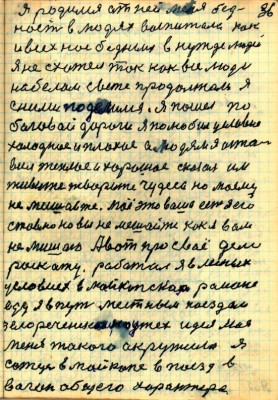 36
Я родился от ней меня бед-
ность в людях воспитала как
и всех нас бедных в нужде людей
Я не схотел так как все люди
на белом свете продолжали я
с ними поделился. Я пошел по
боговой дороги я полюбил условие
холодное и плохое а людям оста-
вил теплое и хорошое сказал им
живите творите чудеса но моему
не мешайте. Моё это ваше я его
ставлю но вы не мешайте как я вам
не мешаю А вот про своё дело
раскажу. работал я в лесных
условиях в районе
еду я в путь местным поездом
иду моя
меня такого окружила Я
сотую в майкопе в поезд в
вагон общего характера